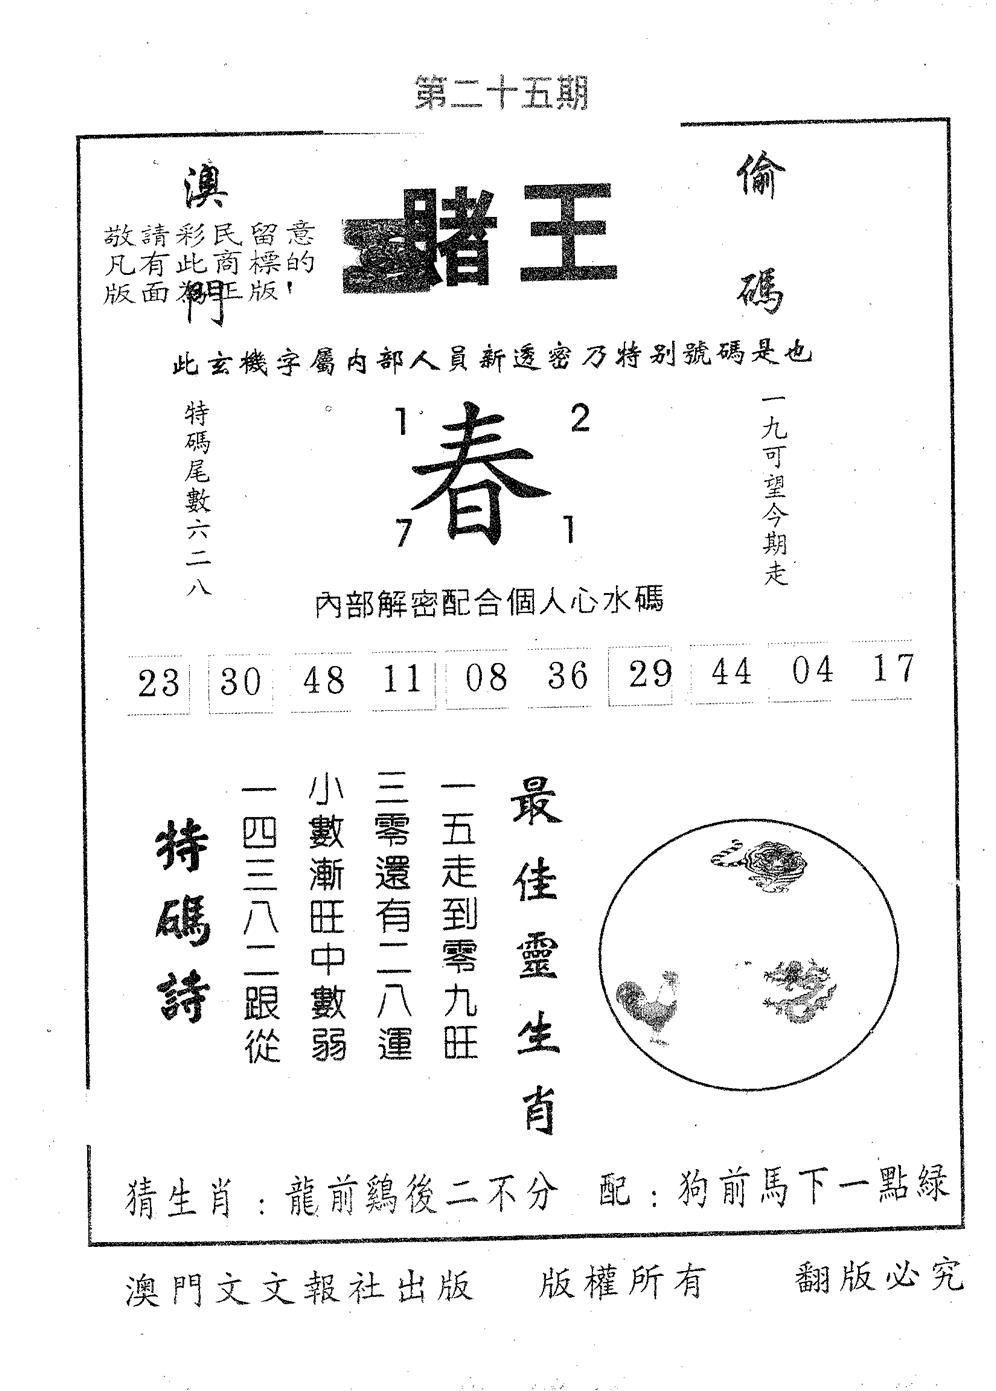 第二十五期
澳門
賭王
偷碼
敬請彩民留意
凡有此商標的
版面為正版!
此玄機字屬内部人員新透密乃特别號碼是也
特碼尾數六二八
1
2
春
7
1
一九可望今期走
內部解密配合個人心水碼
23 30 48 11 08 36 29 44 04 17
最佳靈生肖
一五走到零九旺
三零還有二八運
小數漸旺中數弱
一四三八二跟從
特碼詩
猜生肖:龍前鷄後二不分 配:狗前馬下一點緑
澳門文文報社出版 版權所有 翻版必究